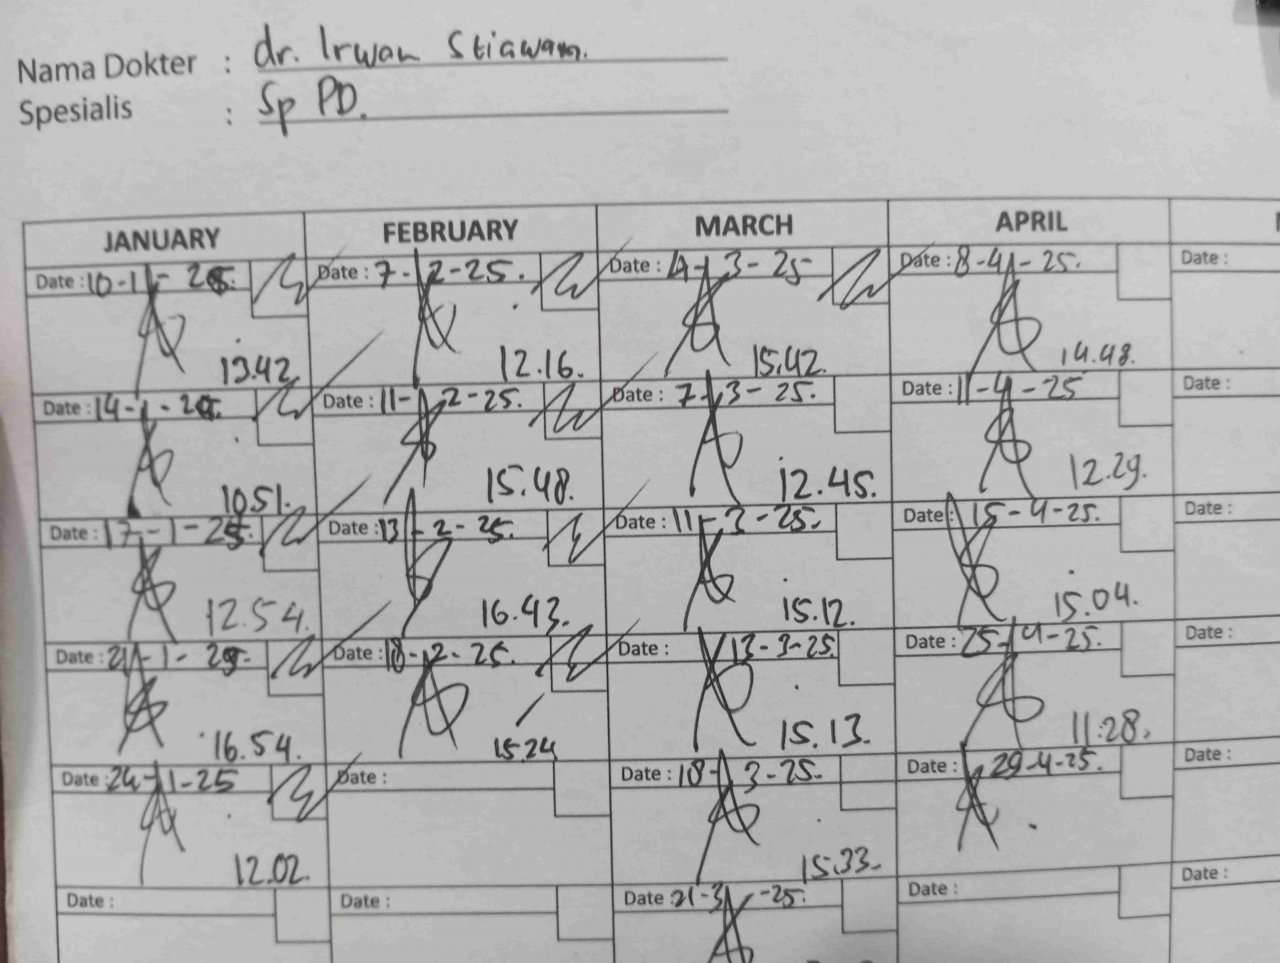 Nama Dokter : dr. Irwan Stiawan.
Spesialis : Sp PD.
JANUARY FEBRUARY MARCH APRIL
Date : 10-1-25. Date : 7-2-25. Date : 4-3-25 Date : 8-4-25. Date :
13.42 12.16. 15.42. 14.48.
Date : 14-1-25. Date : 11-2-25. Date : 7-3-25. Date : 11-4-25 Date :
10.51. 15.48. 12.45. 12.29.
Date : 17-1-25. Date : 13-2-25. Date : 11-3-25. Date : 15-4-25. Date :
12.54. 16.43. 15.12. 15.04.
Date : 21-1-25. Date : 18-2-25. Date : 13-3-25. Date : 25-4-25. Date :
16.54. 15.24 15.13. 11.28.
Date : 24-1-25 Date : Date : 18-3-25. Date : 29-4-25. Date :
12.02. 15.33.
Date : Date : Date : 21-3-25. Date : Date :